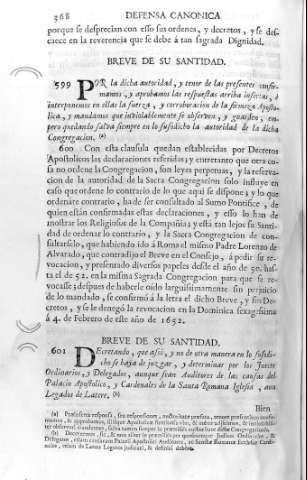 368 DEFENSA CANONICA
porque se desprecian con esso sus ordenes, y decretos, y se des-
caece en la reverencia que se debe á tan sagrada Dignidad.
BREVE DE SU SANTIDAD.
599 POR la dicha autoridad, y tenor de las presentes confir-
mamos, y aprobamos las respuestas arriba insertas, è
interponemos en ellas la fuerza, y corroboracion de la firmeza Aposto-
lica, y mandamos que inviolablemente se observen, y guarden, em-
pero quedando salva siempre en lo susodicho la autoridad de la dicha
Congregacion. (a)
600 Con esta clausula quedan establecidas por Decretos
Apostolicos las declaraciones referidas; y entretanto que otra co-
sa no ordene la Congregacion, son leyes perpetuas, y la reserva-
cion de la autoridad de la Sacra Congregacion solo influye en
caso que ordene lo contrario de lo que aqui se dispone; y lo que
ordenare contrario, ha de ser consultado al Sumo Pontifice, de
quien están confirmadas estas declaraciones, y esso lo han de
mostrar los Religiosos de la Compañia; y está tan lejos su Santi-
dad de ordenar lo contrario, y la Sacra Congregacion de con-
sultarselo, que habiendo ido à Roma el mismo Padre Lorenzo de
Alvarado, que contradijo el Breve en el Consejo, á pedir se re-
vocacion, y presentado diversos papeles desde el año de 50. has-
ta el de 52. en la misma Sagrada Congregacion para que se re-
vocasse; despues de haberle oido larguissimamente sin perjuicio
de lo mandado, se confirmó á la letra el dicho Breve, y sus De-
cretos, y se le denegó la revocacion en la Dominica sexagesima
á 4. de Febrero de este año de 1652.
BREVE DE SU SANTIDAD.
601 Decretando, que assi, y no de otra manera en lo susodi-
cho se haya de juzgar, y determinar por los Jueces
Ordinarios, y Delegados, aunque sean Auditores de las causas del
Palacio Apostolico, y Cardenales de la Santa Romana Iglesia, aun
Legados de Latere. (b)
Bien